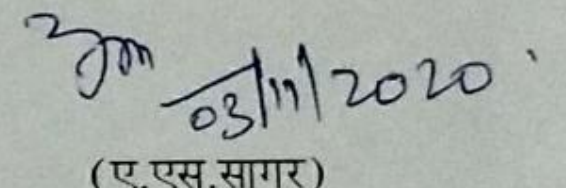 03/11/2020
(ए.एस.सागर)